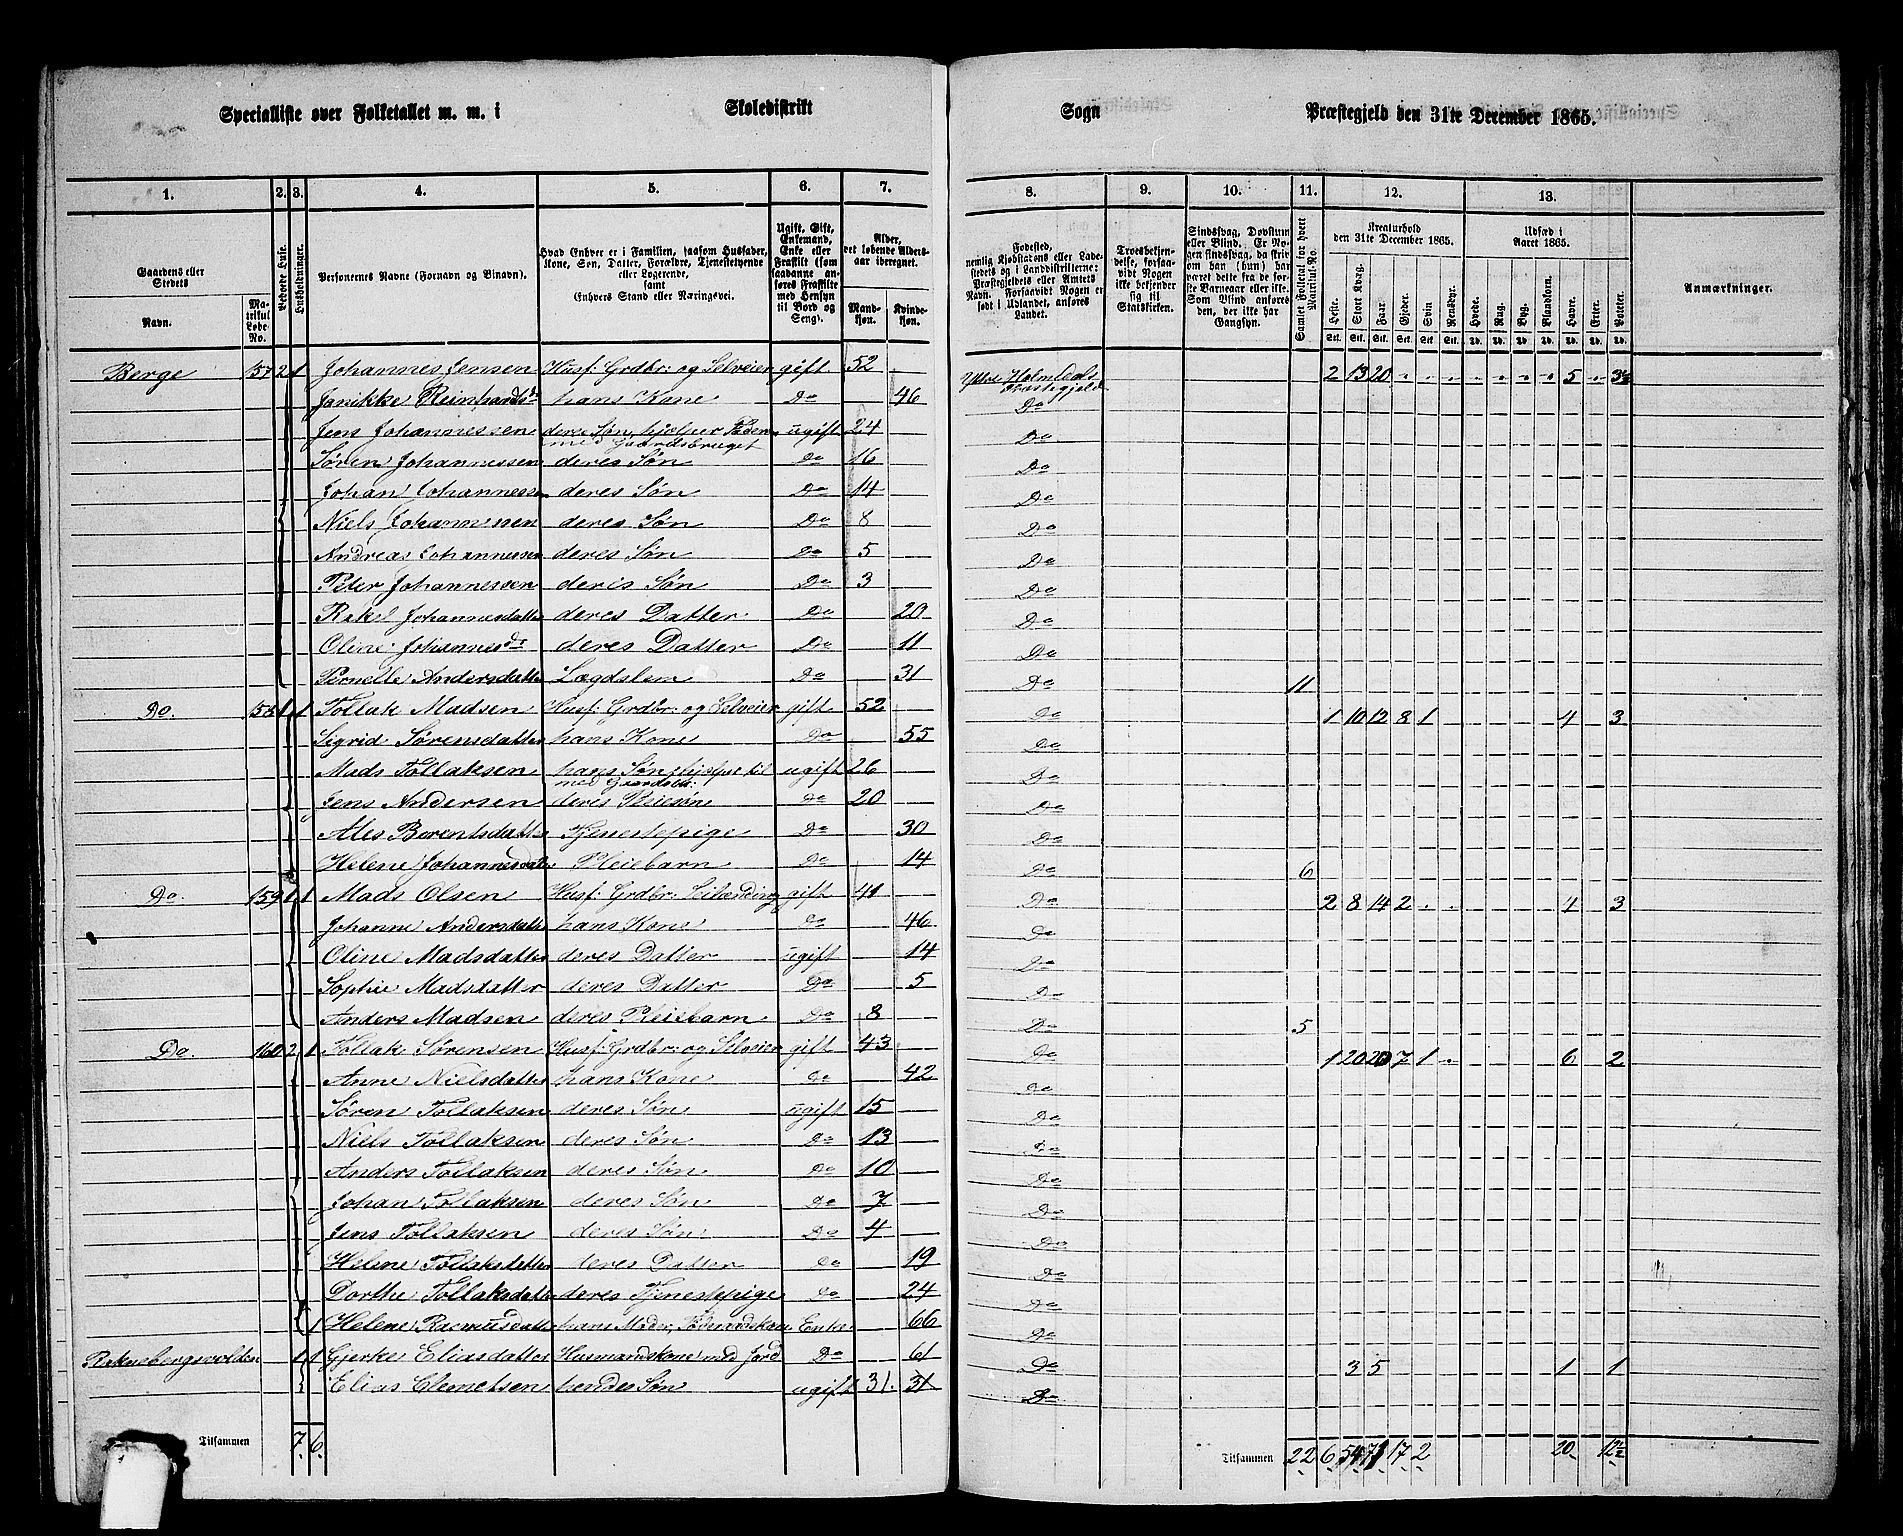 Specialliste over Folketallet m. m. i Skoledistrikt Sogn Præstegjeld den 31te December 1865.
1. 2. 3. 4. 5. 6. 7. 8. 9. 10. 11. 12. 13.
Gaardens eller Stedets Navn. Matrikul Løbe-No.
Beboede Huse.
Husholdninger.
Personernes Navne (Fornavn og Binavn).
Hvad Enhver er i Familien, saasom Husfader, Kone, Søn, Datter, Forældre, Tjenestetyende eller Logerende, samt Enhvers Stand eller Næringsvei.
Ugift, Gift, Enkemand, Enke eller Fraskilt (som saadanne anføres Fraskilte med Hensyn til Bord og Seng).
Alder, det løbende Alders-aar iberegnet.
Mandkøn. Kvindekøn.
Fødested, nemlig Kjøbstadens eller Ladestedets og i Landdistrikterne: Præstegjeldets eller Amtets Navn. Forsaavidt Nogen er født i Udlandet, anføres Landet.
Troesbekjendelse, forsaavidt Nogen ikke bekjender sig til Statskirken.
Sindssvag, Døvstum eller Blind. Er Nogen sindssvag, da skrives om han (hun) har været dette fra de første Barneaar eller ikke. Som Blind anføres den, der ikke har Gangsyn.
Samlet Folketal for hvert Matrikul-No.
Kreaturhold den 31te December 1865.
Heste. Stort Kvæg. Faar. Gjeder. Svin. Rensdyr.
Udsæd i Aaret 1865.
Hvede. Rug. Byg. Blandkorn. Havre. Erter. Poteter.
Anmærkninger.
Berge 157 2 1 Johannes Jensen Husf: Grdbr: og Selveier gift 52 Yttre Holmedals Præstegjeld 2 13 20 5 3½
Janikke Reinhardsd. hans Kone Do 46 Do
Jens Johannessen deres Søn, hjelper Faderen med Gaardsbruget ugift 24 Do
Søren Johannessen deres Søn Do 16 Do
Johan Johannessen deres Søn Do 14 Do
Niels Johannessen deres Søn Do 8 Do
Andreas Johannessen deres Søn Do 5 Do
Peter Johannessen deres Søn Do 3 Do
Rakel Johannesdatter deres Datter Do 20 Do
Oline Johannesd. deres Datter Do 11 Do
Pernelle Andersdatter Lægdslem Do 31 Do 11
Do. 158 1 1 Tollak Madsen Husf: Grdbr: og Selveier gift 52 Do 1 10 12 8 1 4 3
Sigrid Sørensdatter hans Kone Do 55 Do
Mads Tollaksen hans Søn hjelper til med Gaardsbr: ugift 26 Do
Jens Andersen deres Pleiesøn Do 20 Do
Ales Berentsdatter Tjenestepige Do 30 Do
Helene Johannesdatter Pleiebarn Do 14 Do 6
Do. 159 1 1 Mads Olsen Husf: Grdbr: Leilænding gift 41 Do 2 8 14 2 4 3
Johanne Andersdatter hans Kone Do 46 Do
Oline Madsdatter deres Datter ugift 14 Do
Sophie Madsdatter deres Datter Do 5 Do
Anders Madsen deres Pleiebarn Do 8 Do 5
Do. 160 2 1 Tollak Sørensen Husf: Grdbr: og Selveier gift 43 Do 1 20 20 7 1 6 2
Anne Nielsdatter hans Kone Do 42 Do
Søren Tollaksen deres Søn ugift 15 Do
Niels Tollaksen deres Søn Do 13 Do
Anders Tollaksen deres Søn Do 10 Do
Johan Tollaksen deres Søn Do 7 Do
Jens Tollaksen deres Søn Do 4 Do
Helene Tollaksdatter deres Datter Do 19 Do
Dorthe Tollaksdatter deres Tjenestepige Do 24 Do
1 Helene Rasmusdatter hans Moder, Føderaadskone Enke 66 Do
Raknebergsvolden 1 1 Gjerke Eliasdatter Husmandskone med Jord Do 61 Do 3 5 1 1
Elias Clemetsen hendes Søn ugift 31. 31 Do
Tilsammen 7 6 Tilsammen 22 6 54 71 17 2 20 12½